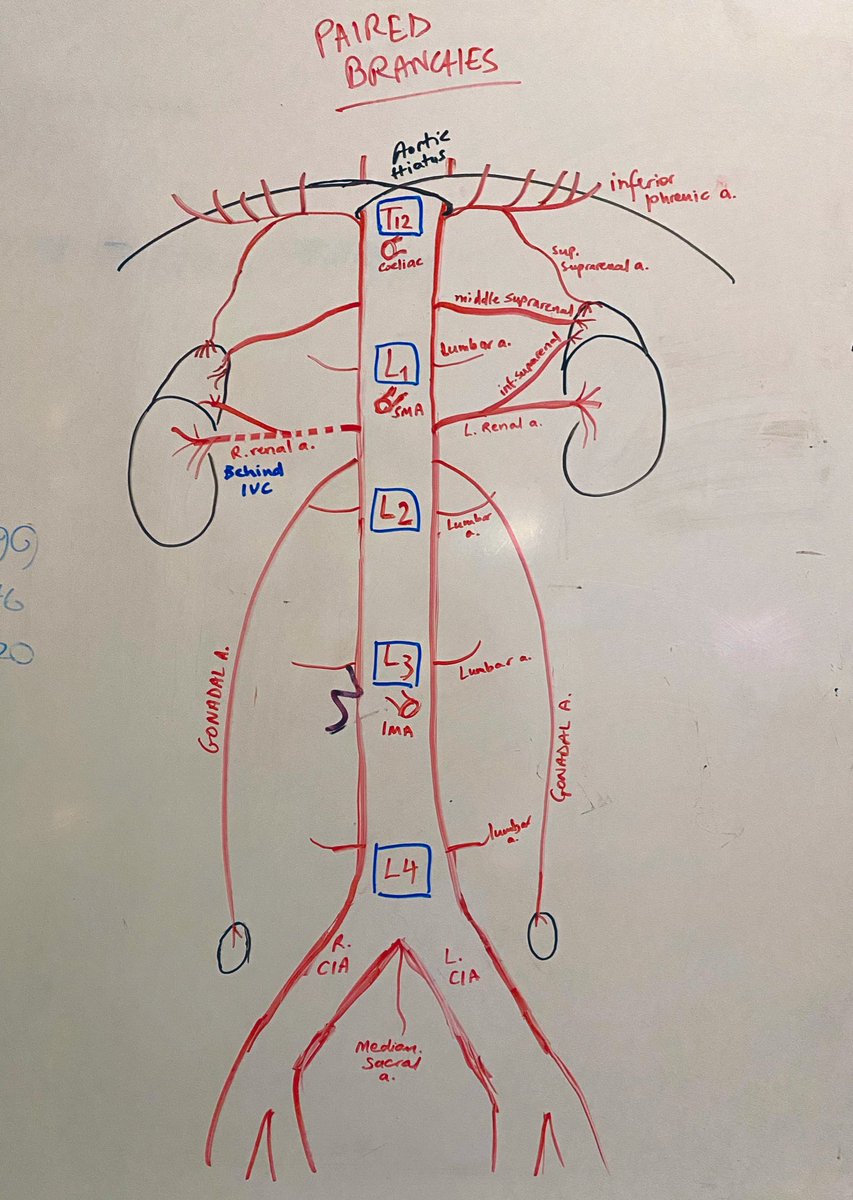 PAIRED
BRANCHES
Aortic
Hiatus
inferior
phrenic a.
T12
Coeliac
sup.
suprarenal a.
middle suprarenal
Lumbar a.
L1
SMA
inf. suparenal
L. Renal a.
R. renal a.
Behind
IVC
L2
Lumbar
a.
GONADAL A.
L3
Lumbar a.
IMA
GONADAL A.
lumbar
a.
L4
R.
CIA
L.
CIA
Median
Sacral
a.
20